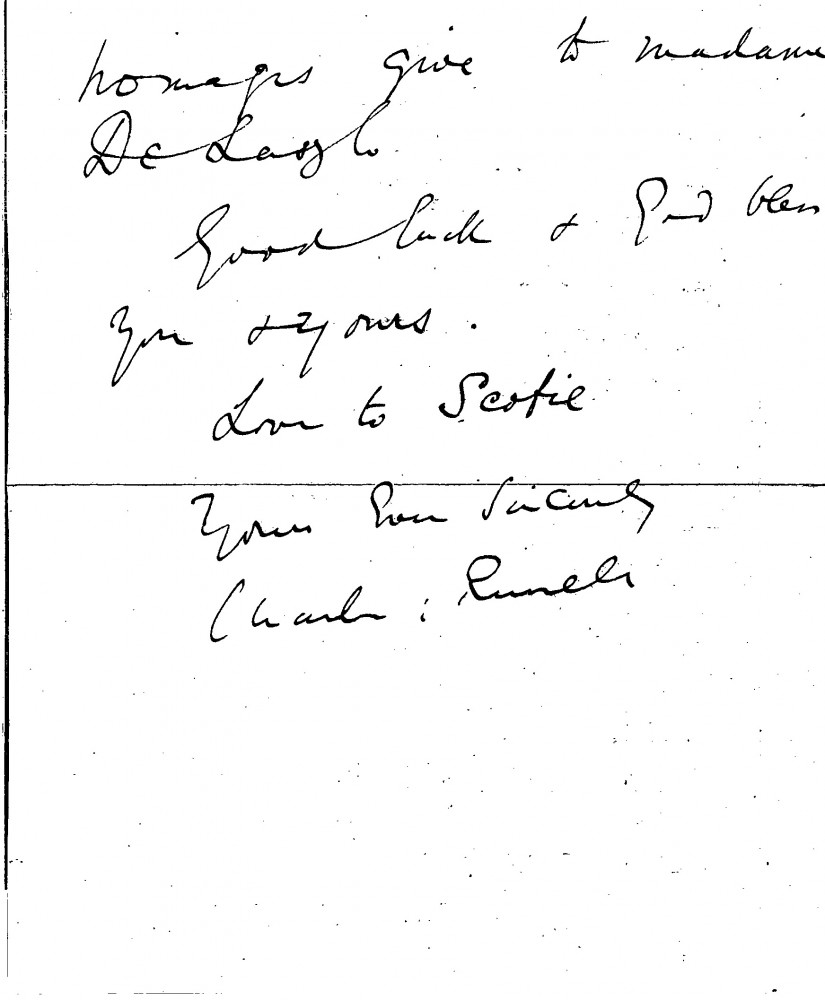 homages give to madame
De Laszlo
Good luck & God bless
you & yours.
Love to Scotie
Yours Ever Sincerely
Charles: Russell